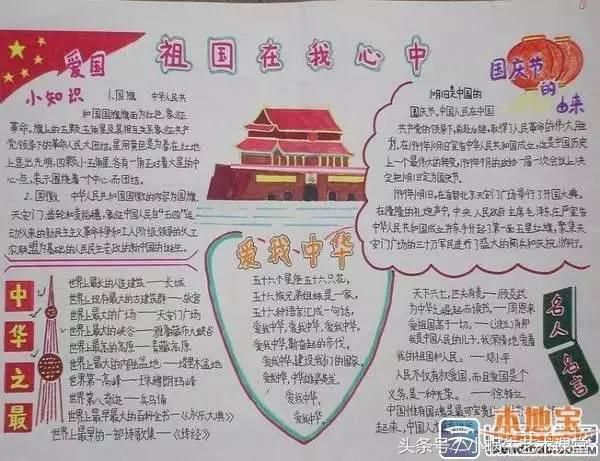 祖国在我心中
爱国
小知识
1.国旗 中华人民共
和国国旗旗面为红色,象征
革命。旗上的五颗五角星及其相互关系象征共产
党领导下的革命人民大团结。星用黄色是为着在红地
上显出光明,四颗小五角星各有一角正对着大星的中
心点,表示围绕着一个中心而团结。
2.国徽 中华人民共和国国徽的内容为国旗、
天安门、齿轮和麦稻穗,象征中国人民自“五四”运
动以来的新民主主义革命斗争和工人阶级领导的以工
农联盟为基础的人民民主专政的新中国的诞生。
国庆节
的
由来
10月1日是中国的
国庆节,中国人民在中国
共产党的领导下,前赴后继,取得了人民革命的伟大胜
利。在1949年10月1日宣告中华人民共和国成立,这是中国历史
上一个最伟大的转变。
决定把10月1日定为国庆节。
1949年10月1日,在首都北京天安门广场举行了开国大典。
在隆隆的礼炮声中,中央人民政府主席毛泽东庄严宣告
中华人民共和国成立并亲手升起了第一面五星红旗。聚集天
安门广场的三十万军民进行了盛大的阅兵和庆祝游行。
爱我中华
五十六个星座五十六只花,
五十六族兄弟姐妹是一家,
五十六种语言汇成一句话,
爱我中华,爱我中华,爱我中华。
爱我中华,奋起的步伐,
爱我中华,建设我们的国家。
爱我中华,中华雄姿英发,
爱我中华,
爱我中华。
中华之最
世界上最长的人造建筑——长城
世界上现存最大的古建筑群——故宫
世界上最大的广场——天安门广场
世界上最大的峡谷——雅鲁藏布大峡谷
世界上最高的高原——青藏高原
世界上最大的内陆盆地——塔里木盆地
世界第一高峰——珠穆朗玛峰
世界第八奇迹——兵马俑
世界上最早最大的百科全书——《永乐大典》
世界上最早的一部诗歌集——《诗经》
名人
名言
天下兴亡,匹夫有责——顾炎武
为中华之崛起而读书——周恩来
爱祖国高于一切。——肖邦
我是中国人民的儿子,我深情地爱着
我的祖国和人民。——邓小平
人民不仅有权爱国,而且爱国是个
义务,是一种光荣。——徐特立
本地宝